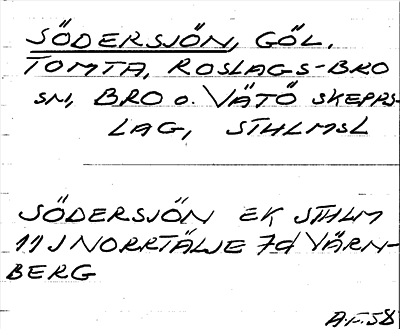 SÖDERSJÖN, GÖL,
TOMTA, ROSLAGS-BRO
SN, BRO o. VÄTÖ SKEPPS-
LAG, STHLMSL
SÖDERSJÖN EK STHLM
11 J NORRTÄLJE 7d VÄRN-
BERG
A.F.58